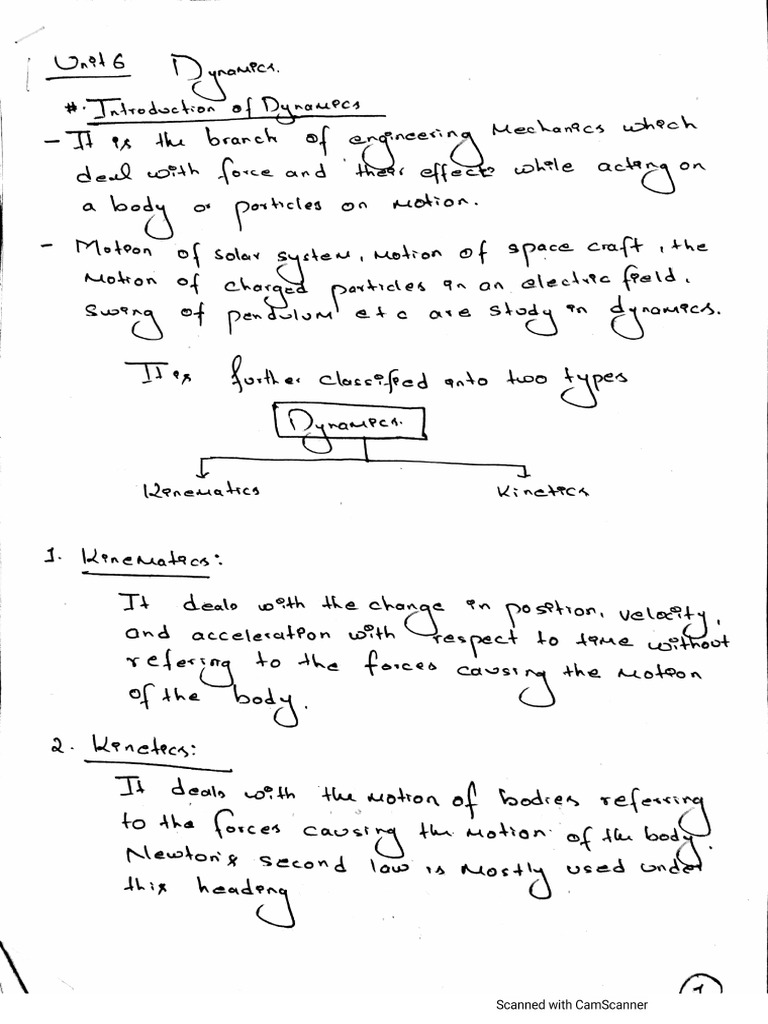 Unit 6 Dynamics.
#. Introduction of Dynamics
- It is the branch of engineering Mechanics which
deal with force and their effects while acting on
a body or particles on motion.
- Motion of solar system, motion of space craft, the
motion of charged particles in an electric field,
swing of pendulum etc are study in dynamics.
It is further classified into two types
Dynamics.
Kinematics Kinetics
1. Kinematics:
It deals with the change in position, velocity,
and acceleration with respect to time without
refering to the forces causing the motion
of the body.
2. Kinetics:
It deals with the motion of bodies referring
to the forces causing the motion of the body.
Newton's second law is mostly used under
this heading
1
Scanned with CamScanner